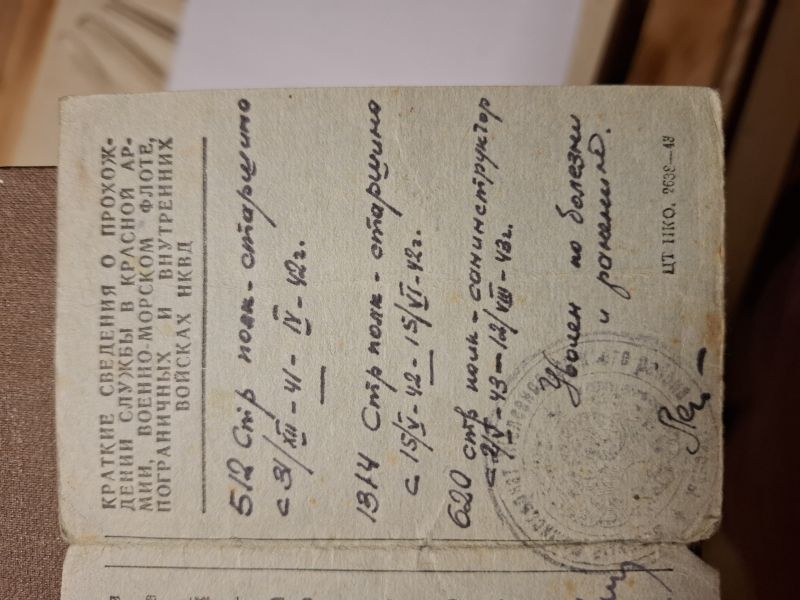 КРАТКИЕ СВЕДЕНИЯ О ПРОХОЖ-
ДЕНИИ СЛУЖБЫ В КРАСНОЙ АР-
МИИ, ВОЕННО-МОРСКОМ ФЛОТЕ,
ПОГРАНИЧНЫХ И ВНУТРЕННИХ
ВОЙСКАХ НКВД
512 Стр полк - старшина
с 31/XII - 41 - IV - 42г.
1314 Стр полк - старшина
с 15/V - 42 - 15/VI - 42г.
620 стр полк - санинструктор
с 2/V - 43 - 12/VIII - 43г.
Уволен по болезни
и ранений.
ЦТ НКО. 2638—43